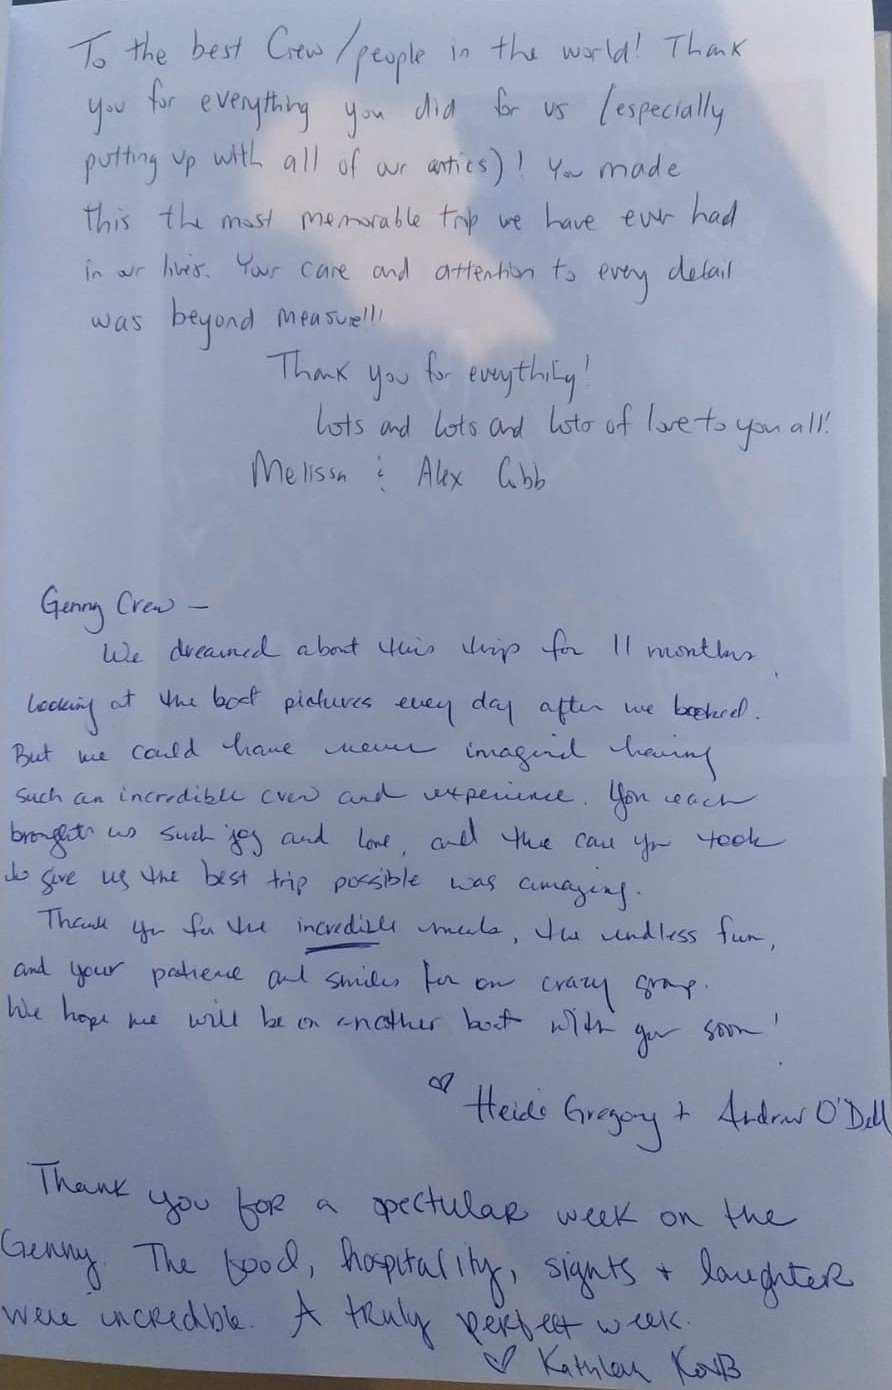 To the best Crew/people in the world! Thank
you for everything you did for us (especially
putting up with all of our antics)! You made
this the most memorable trip we have ever had
in our lives. Your care and attention to every detail
was beyond measure!!!
Thank you for everything!
Lots and Lots and Lots of love to you all!
Melissa & Alex
Genny Crew —
We dreamed about this trip for 11 months,
looking at the boat pictures every day after we booked.
But we could have never imagined having
such an incredible crew and experience. You each
brought us such joy and love, and the care you took
to give us the best trip possible was amazing.
Thank you for the incredible meals, the endless fun,
and your patience and smiles for our crazy group.
We hope we will be on another boat with you soon!
♡ Heidi Gregory + Andrew O'Dell
Thank you for a spectular week on the
Genny. The food, hospitality, sights + laughter
were incredble. A truly perfect week.
♡ Kathleen